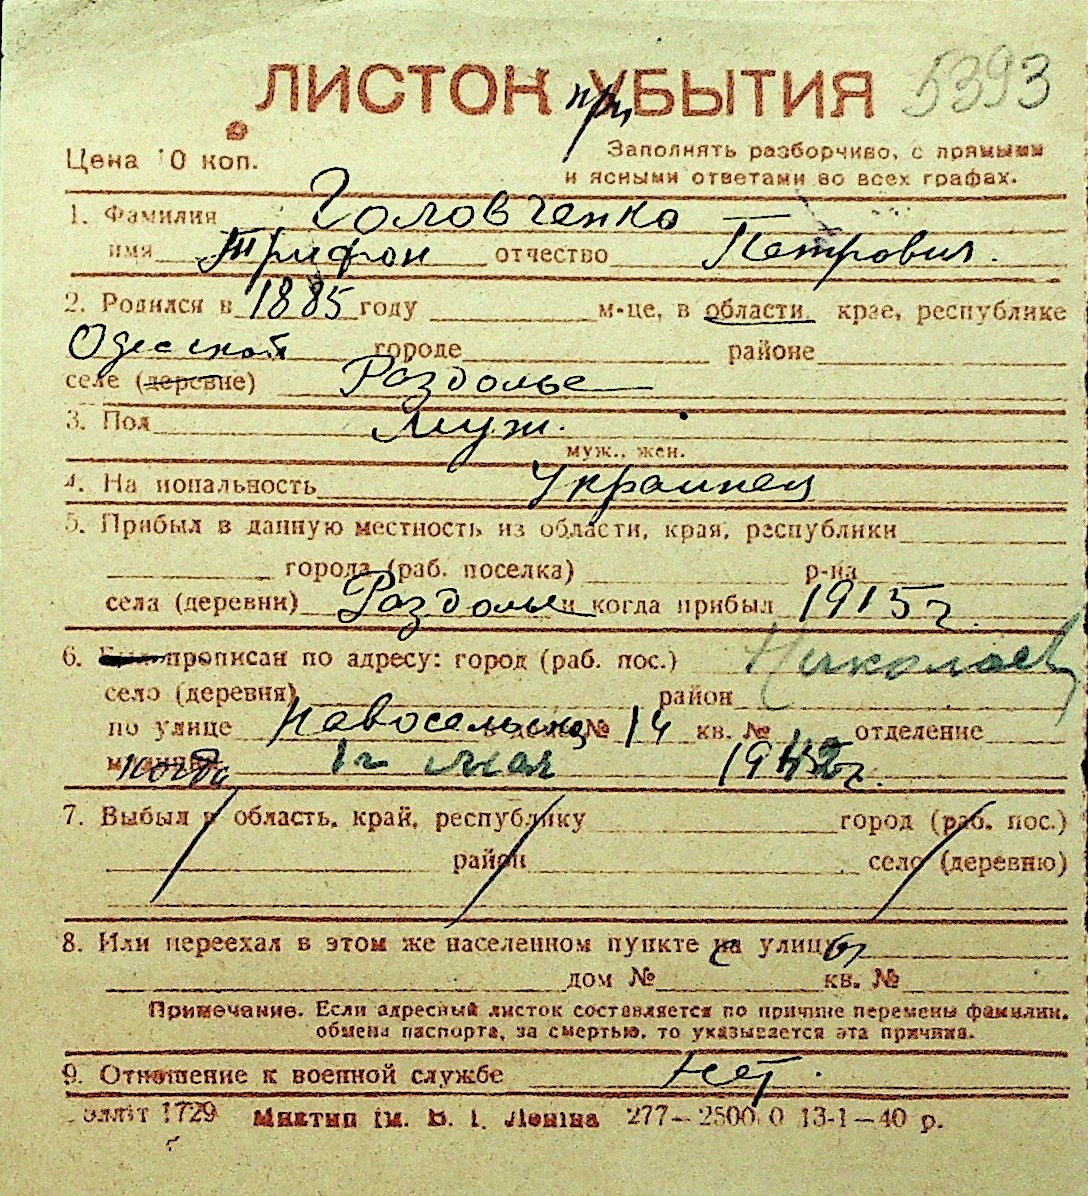 ЛИСТОК при УБЫТИЯ 5393
Цена 10 коп.
Заполнять разборчиво, с прямыми
и ясными ответами во всех графах.
1. Фамилия Головченко
имя Трифон отчество Петрович.
2. Родился в 1885 году м-це, в области, крае, республике
Одесской городе районе
селе (деревне) Раздолье
3. Пол Муж.
муж., жен.
4. На иональность Украинец
5. Прибыл в данную местность из области, края, республики
города (раб. поселка) р-на
села (деревни) Раздолье и когда прибыл 1915 г.
6. прописан по адресу: город (раб. пос.) Николаев
село (деревня) район
по улице Новосельская № 14 кв. № отделение
когда 1го мая 1942 г.
7. Выбыл в область, край, республику город (раб. пос.)
район село (деревню)
8. Или переехал в этом же населенном пункте с улицы
дом № кв. №
Примечание. Если адресный листок составляется по причине перемены фамилии,
обмена паспорта, за смертью, то указывается эта причина.
9. Отношение к военной службе Нет.
1729 Миктип ім. В. І. Леніна 277—2500 0 13-1—40 р.